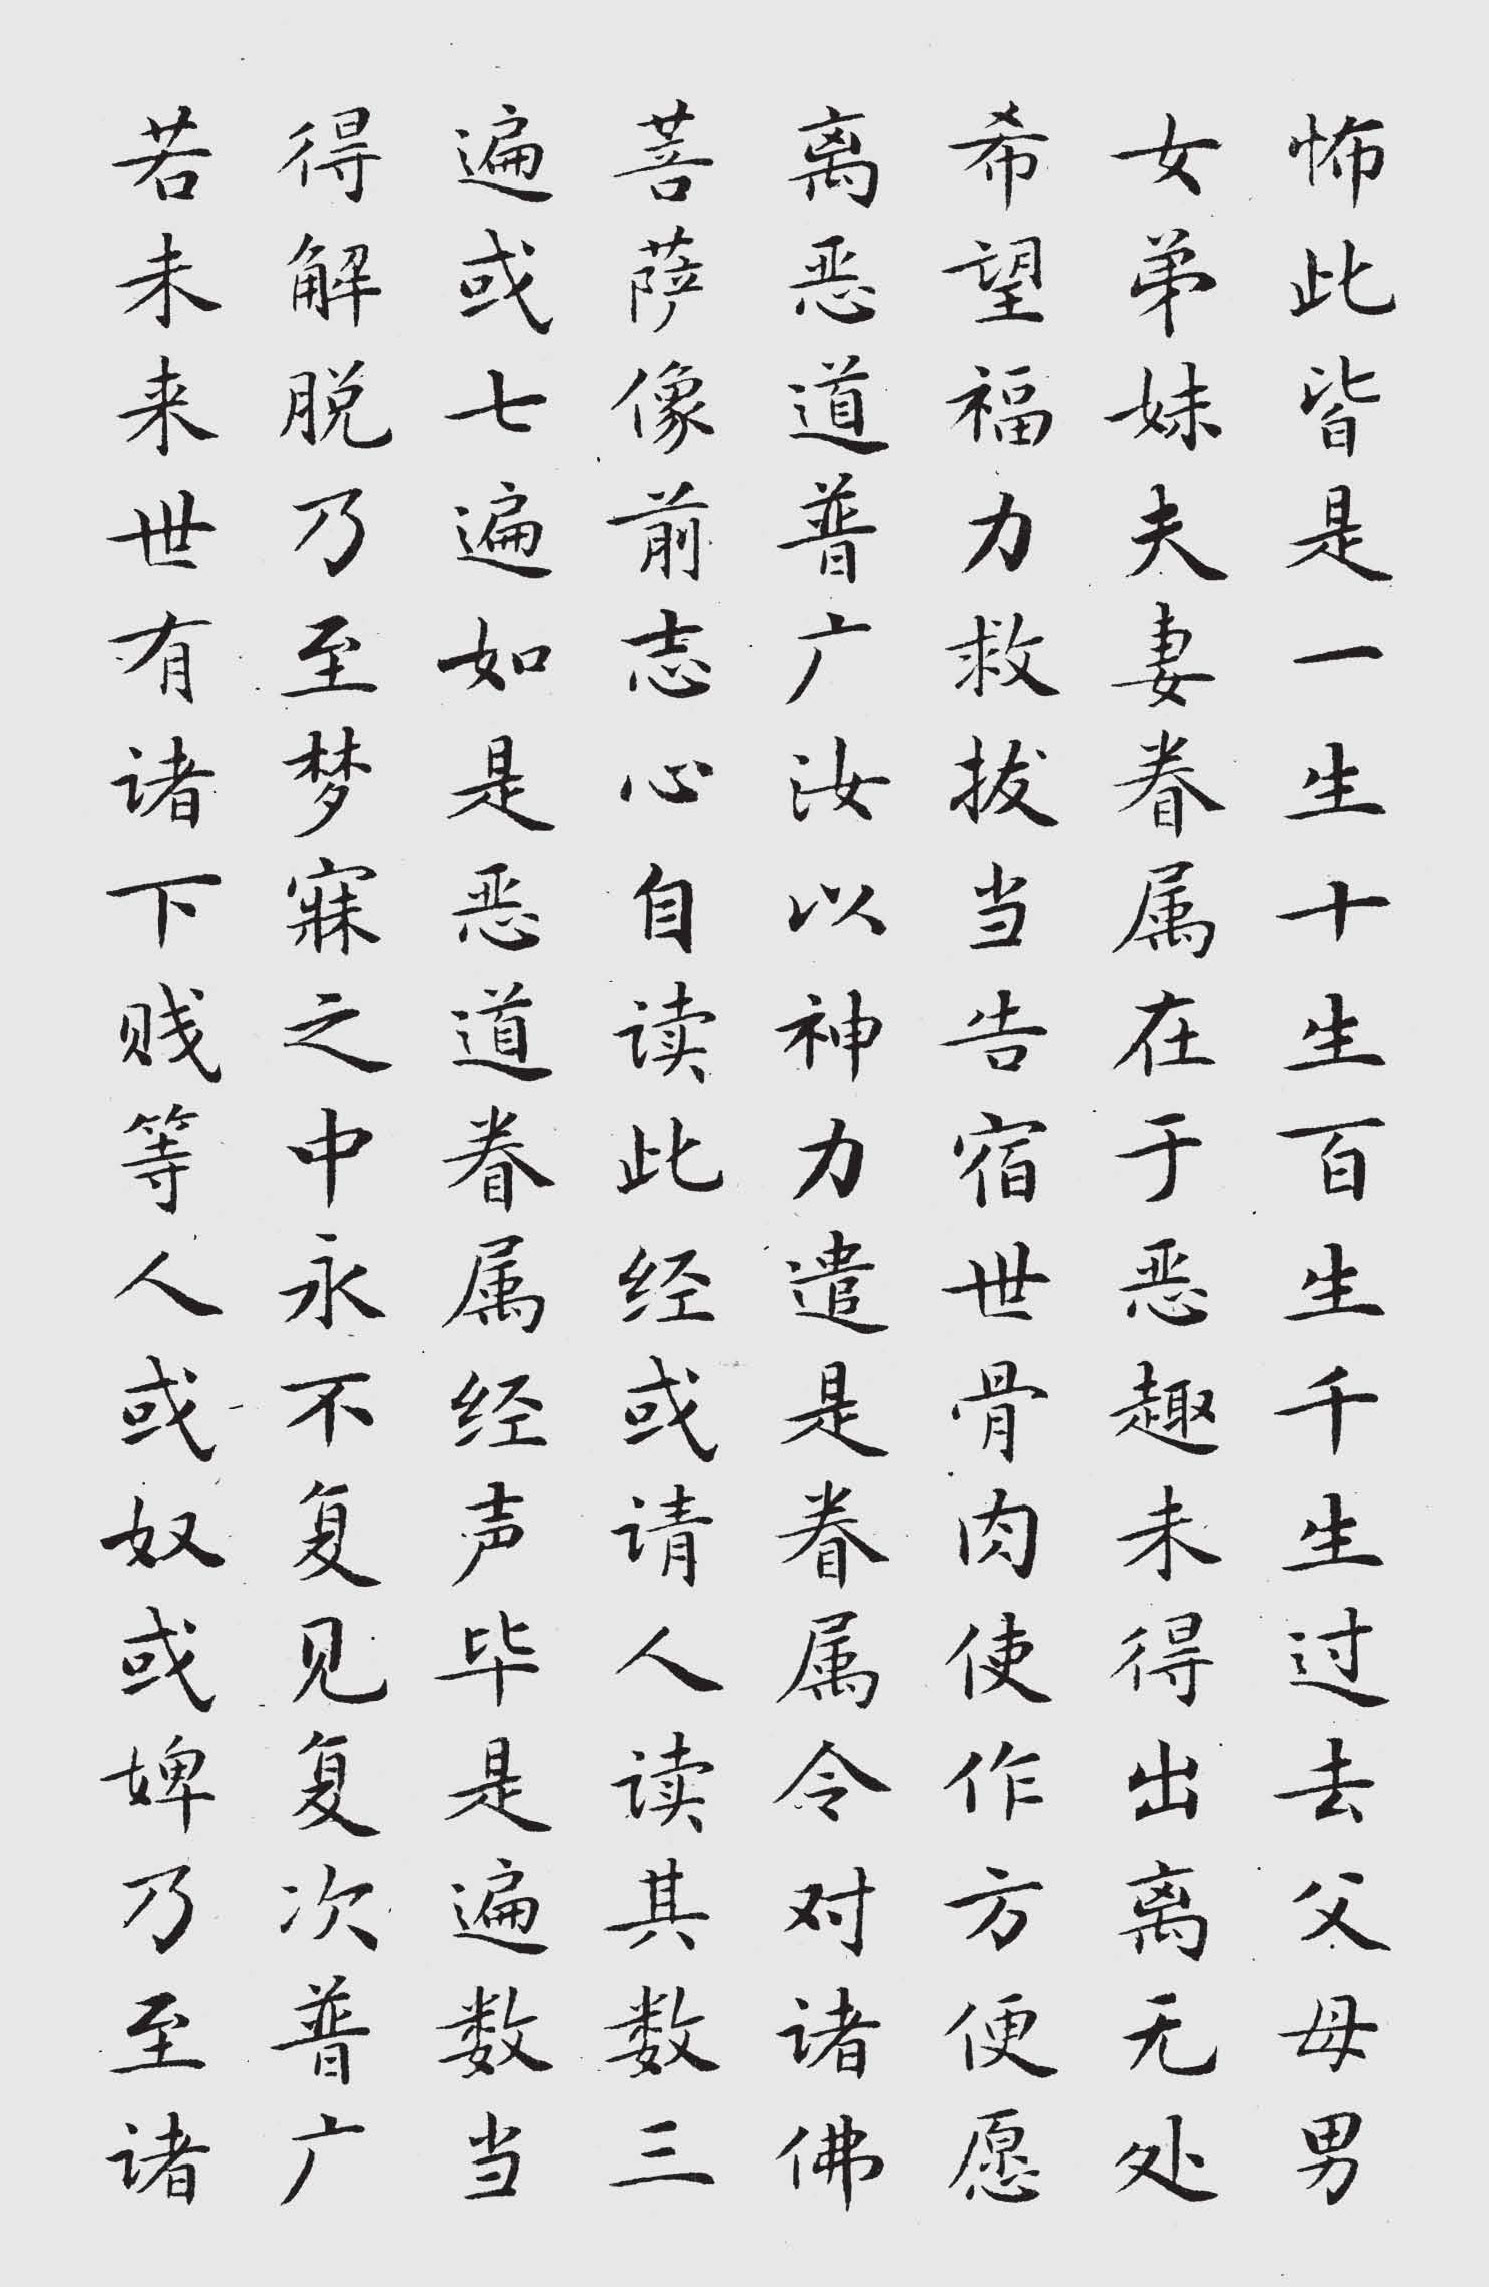 怖此皆是一生十生百生千生过去父母男
女弟妹夫妻眷属在于恶趣未得出离无处
希望福力救拔当告宿世骨肉使作方便愿
离恶道普广汝以神力遣是眷属令对诸佛
菩萨像前志心自读此经或请人读其数三
遍或七遍如是恶道眷属经声毕是遍数当
得解脱乃至梦寐之中永不复见复次普广
若未来世有诸下贱等人或奴或婢乃至诸